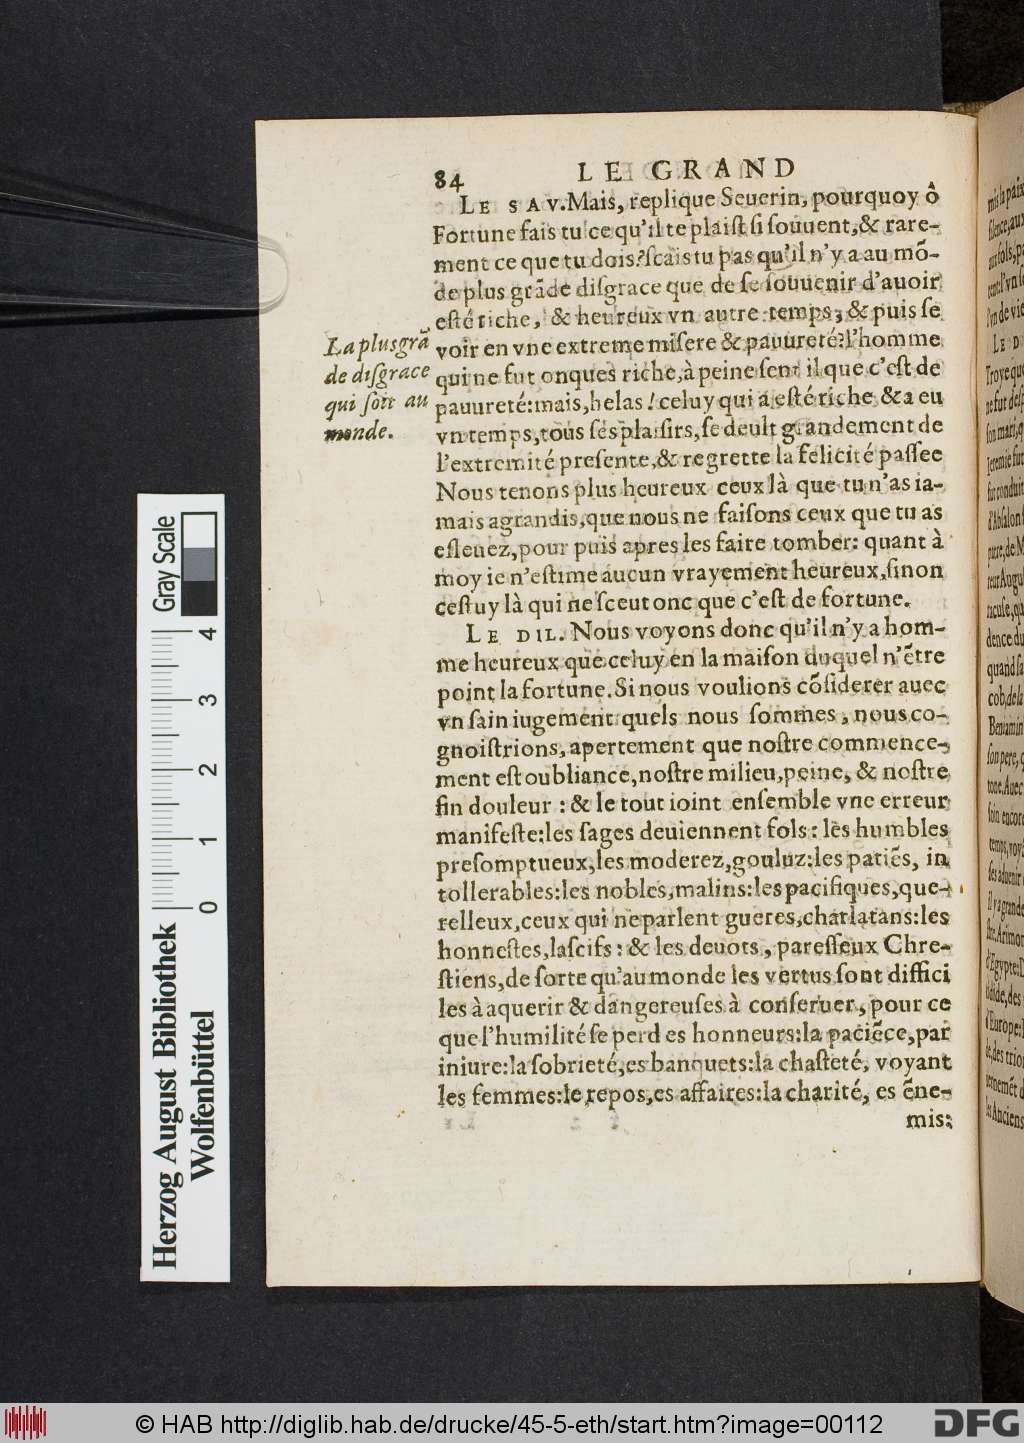 84 LE GRAND
LE SAV. Mais, replique Seuerin, pourquoy ô
Fortune fais tu ce qu'il te plaiſt ſi ſouuent, & rare-
ment ce que tu dois? ſcais tu pas qu'il n'y a au mō-
de plus grāde diſgrace que de ſe ſouuenir d'auoir
eſté riche, & heureux vn autre temps, & puis ſe
voir en vne extreme miſere & pauureté? l'homme
qui ne fut onques riche, à peine ſent il que c'eſt de
pauureté: mais, helas! celuy qui a eſté riche & a eu
vn temps, tous ſes plaiſirs, ſe deult grandement de
l'extremité preſente, & regrette la felicité paſſee
Nous tenons plus heureux ceux là que tu n'as ia-
mais agrandis, que nous ne faiſons ceux que tu as
eſleuez, pour puis apres les faire tomber: quant à
moy ie n'eſtime aucun vrayement heureux, ſinon
ceſtuy là qui ne ſceut onc que c'eſt de fortune.
La plus grā
de diſgrace
qui ſoit au
monde.
LE DIL. Nous voyons donc qu'il n'y a hom-
me heureux que celuy en la maiſon duquel n'ētre
point la fortune. Si nous voulions cōſiderer auec
vn ſain iugement quels nous ſommes, nous co-
gnoiſtrions, apertement que noſtre commence-
ment eſt oubliance, noſtre milieu, peine, & noſtre
fin douleur: & le tout ioint enſemble vne erreur
manifeſte: les ſages deuiennent fols: les humbles
preſomptueux, les moderez, gouluz: les patiēs, in
tollerables: les nobles, malins: les pacifiques, que-
relleux, ceux qui ne parlent gueres, charlatans: les
honneſtes, laſcifs: & les deuots, pareſſeux Chre-
ſtiens, de ſorte qu'au monde les vertus ſont diffici
les à aquerir & dangereuſes à conſeruer, pour ce
que l'humilité ſe perd es honneurs: la paciēce, par
iniure: la ſobrieté, es banquets: la chaſteté, voyant
les femmes: le repos, es affaires: la charité, es ēne-
mis:
Gray Scale
0 1 2 3 4
Herzog August Bibliothek
Wolfenbüttel
© HAB http://diglib.hab.de/drucke/45-5-eth/start.htm?image=00112
DFG